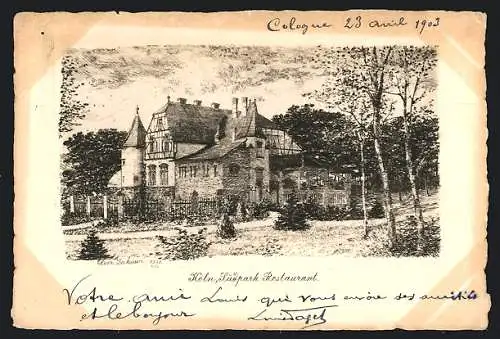 Cologne 23 avril 1903
Köln, Südpark Restaurant.
Votre amie Louis qui vous envoie ses amitiés
et le bonjour